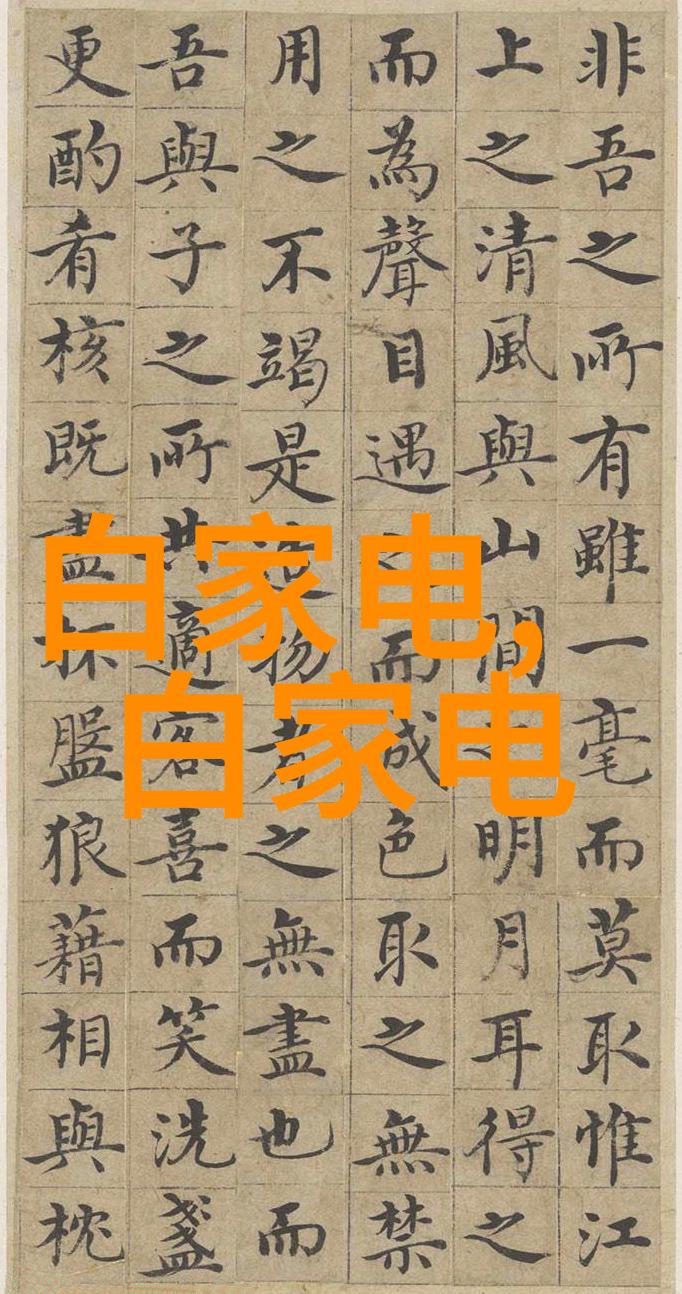 非吾之所有雖一毫而莫取惟江
上之清風與山間之明月耳得之
而為聲目遇之而成色取之無禁
用之不竭是造物者之無盡也而
吾與子之所共適客喜而笑洗盞
更酌肴核既盡杯盤狼藉相與枕
白家电,
白家电